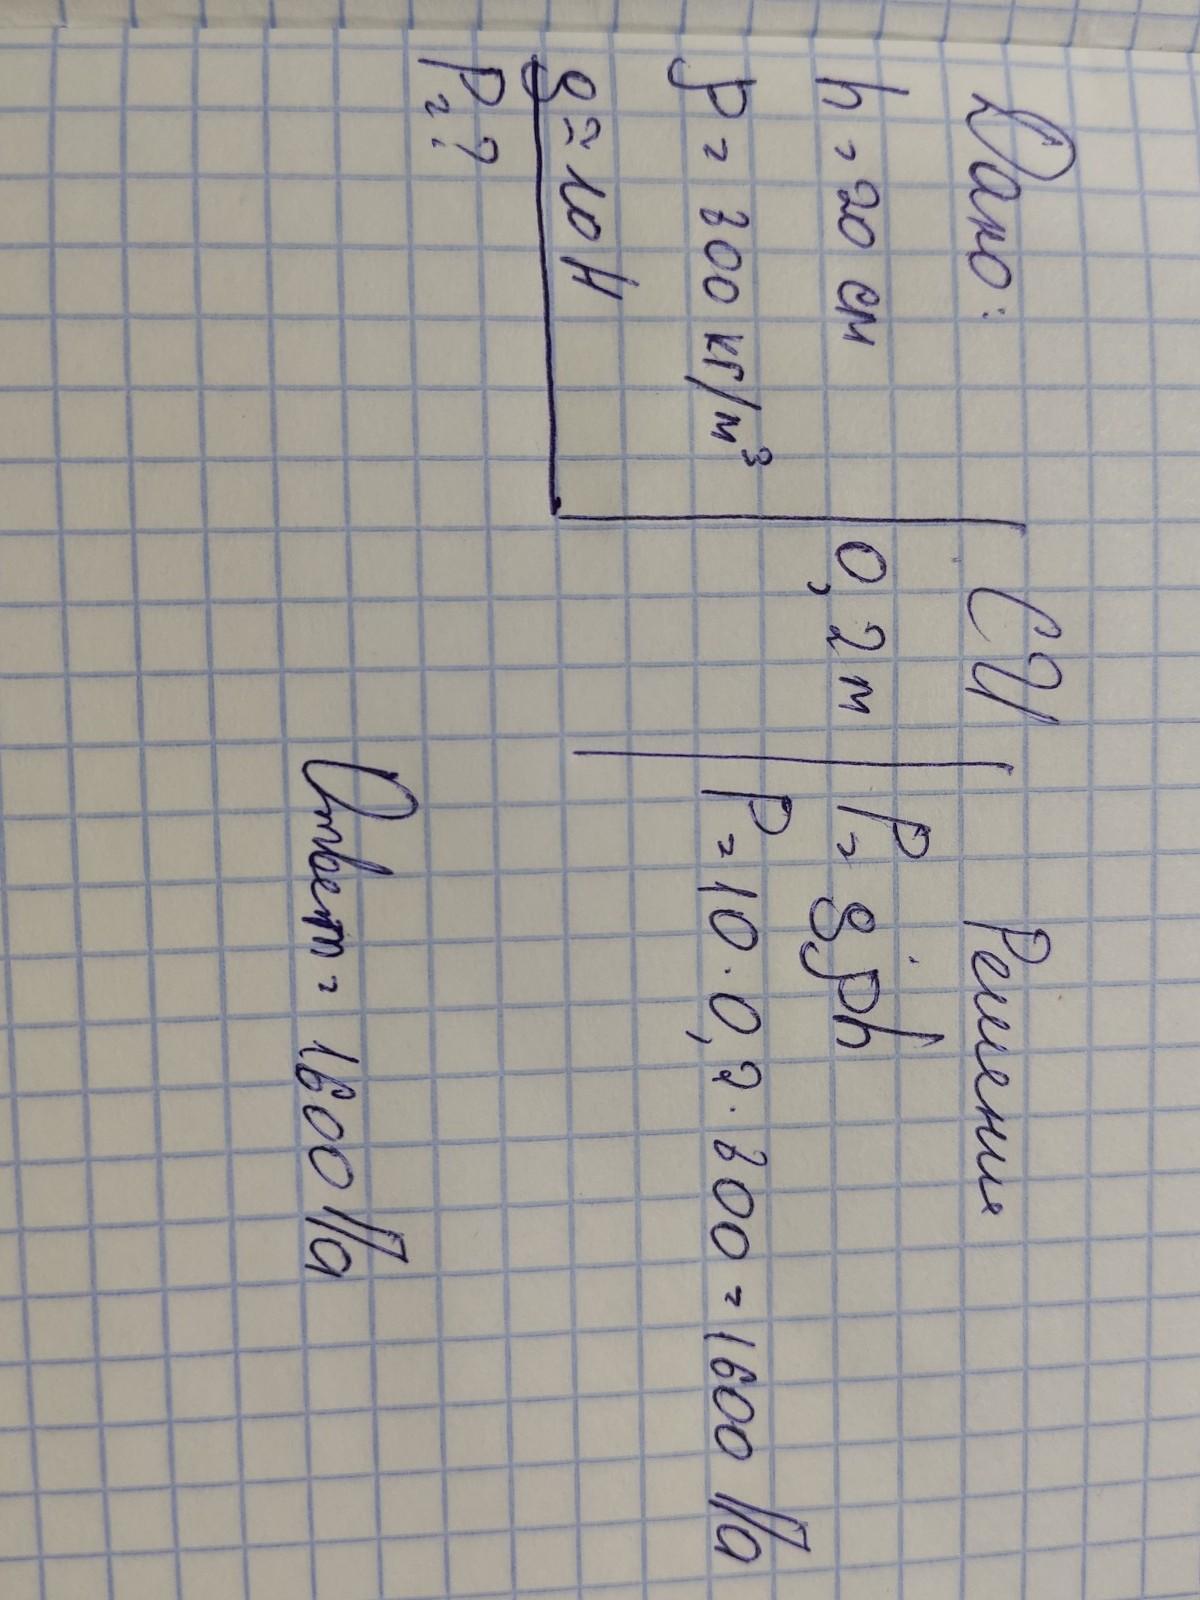 Дано:
h = 20 см
ρ = 800 кг/м³
g ≈ 10 Н
P = ?
СИ
0,2 м
Решение
P = gρh
P = 10 · 0,2 · 800 = 1600 Па
Ответ = 1600 Па